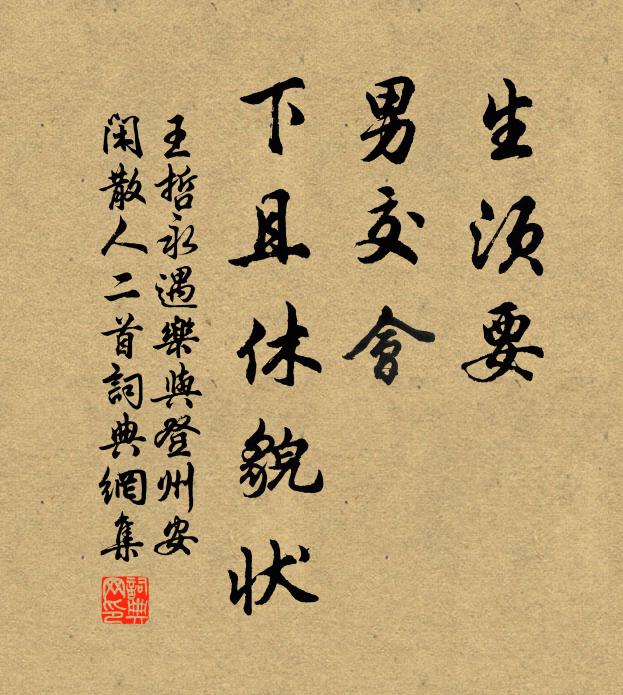 生須要
男交會
下且休貌狀
王哲永遇樂與登州安
閑散人二首詞典網集
詞典网印